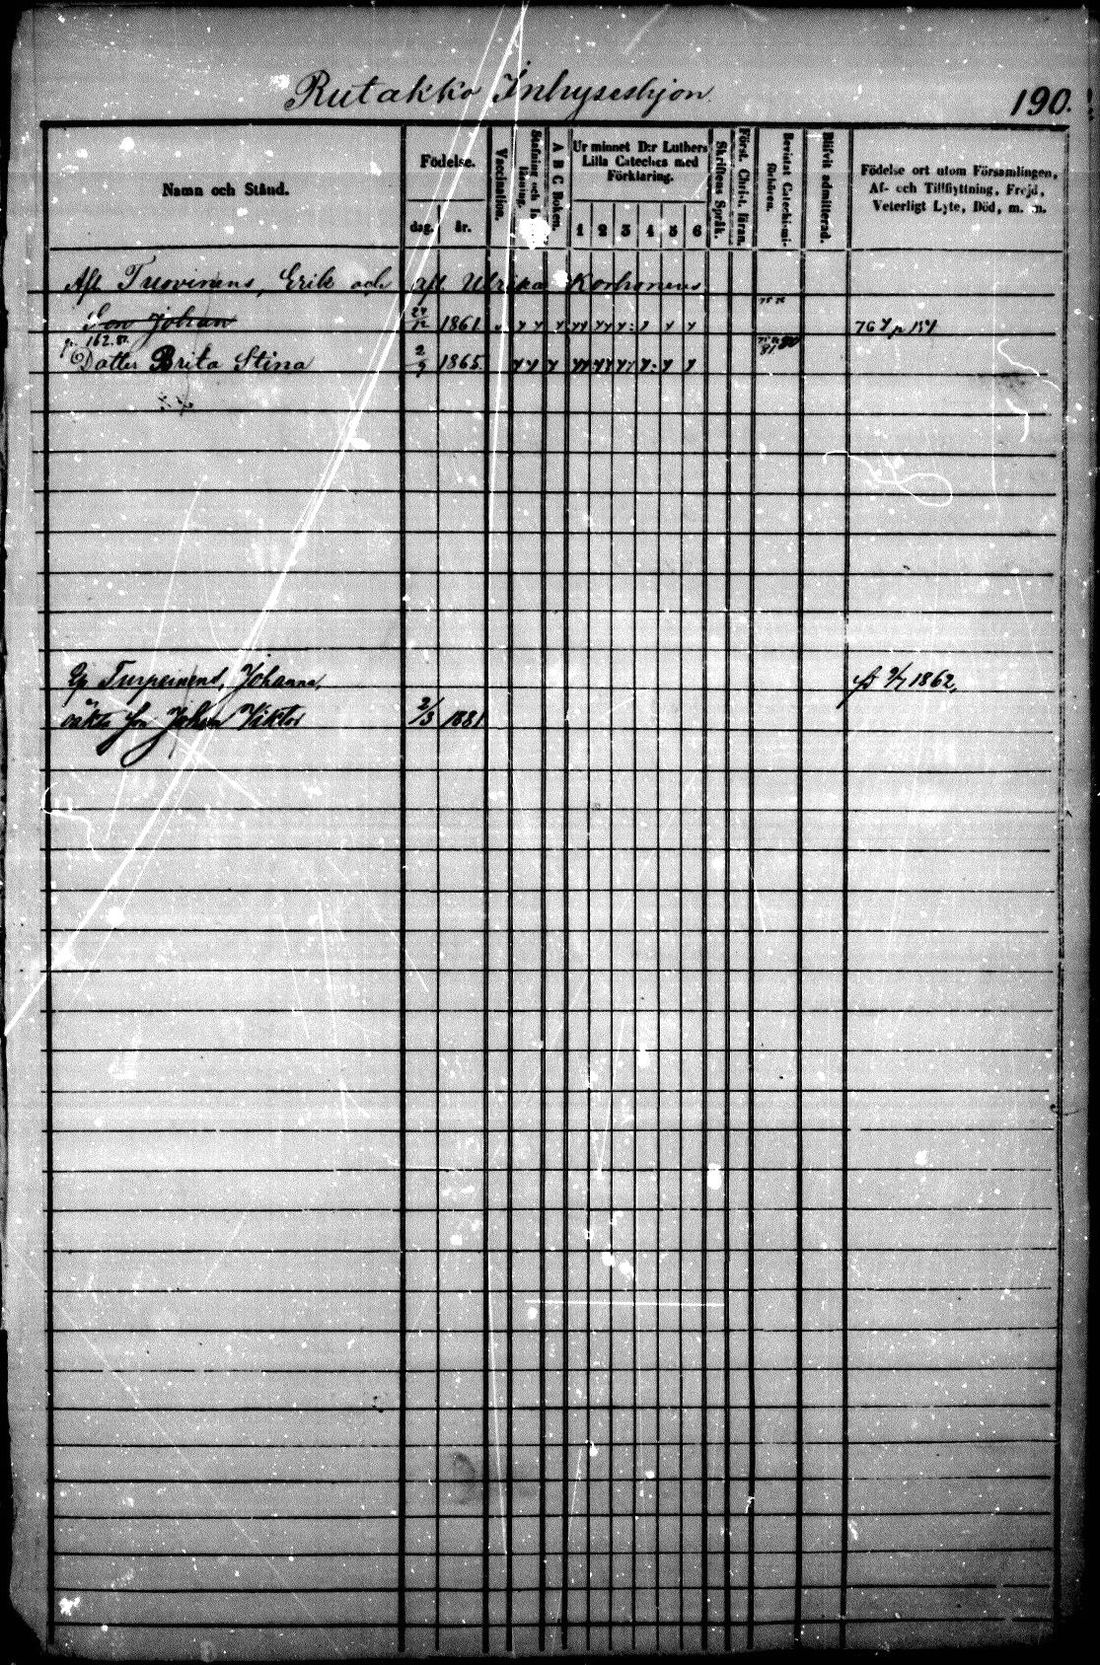 Rutakko Inhyseshjon
190.
Namn och Stånd.
Födelse.
dag.
år.
Vaccination.
Stafning och
läsning.
A B C Boken.
Ur minnet D:r Luthers
Lilla Cateches med
Förklaring.
1 2 3 4 5 6
Skriftens Språk.
Först. Christ. läran.
Bevistat Catechismi-
förhören.
Blifvit admitterad.
Födelse ort utom Församlingen,
Af- och Tillflyttning, Frejd,
Veterligt Lyte, Död, m. m.
Afl Tuovinens, Erik och afl Ulrika Korhonens
Son Johan 1861 76
162.
Dotter Brita Stina 2/9 1865.
Turpeinens, Johanna, 1862,
Johan Viktor 2/3 1881